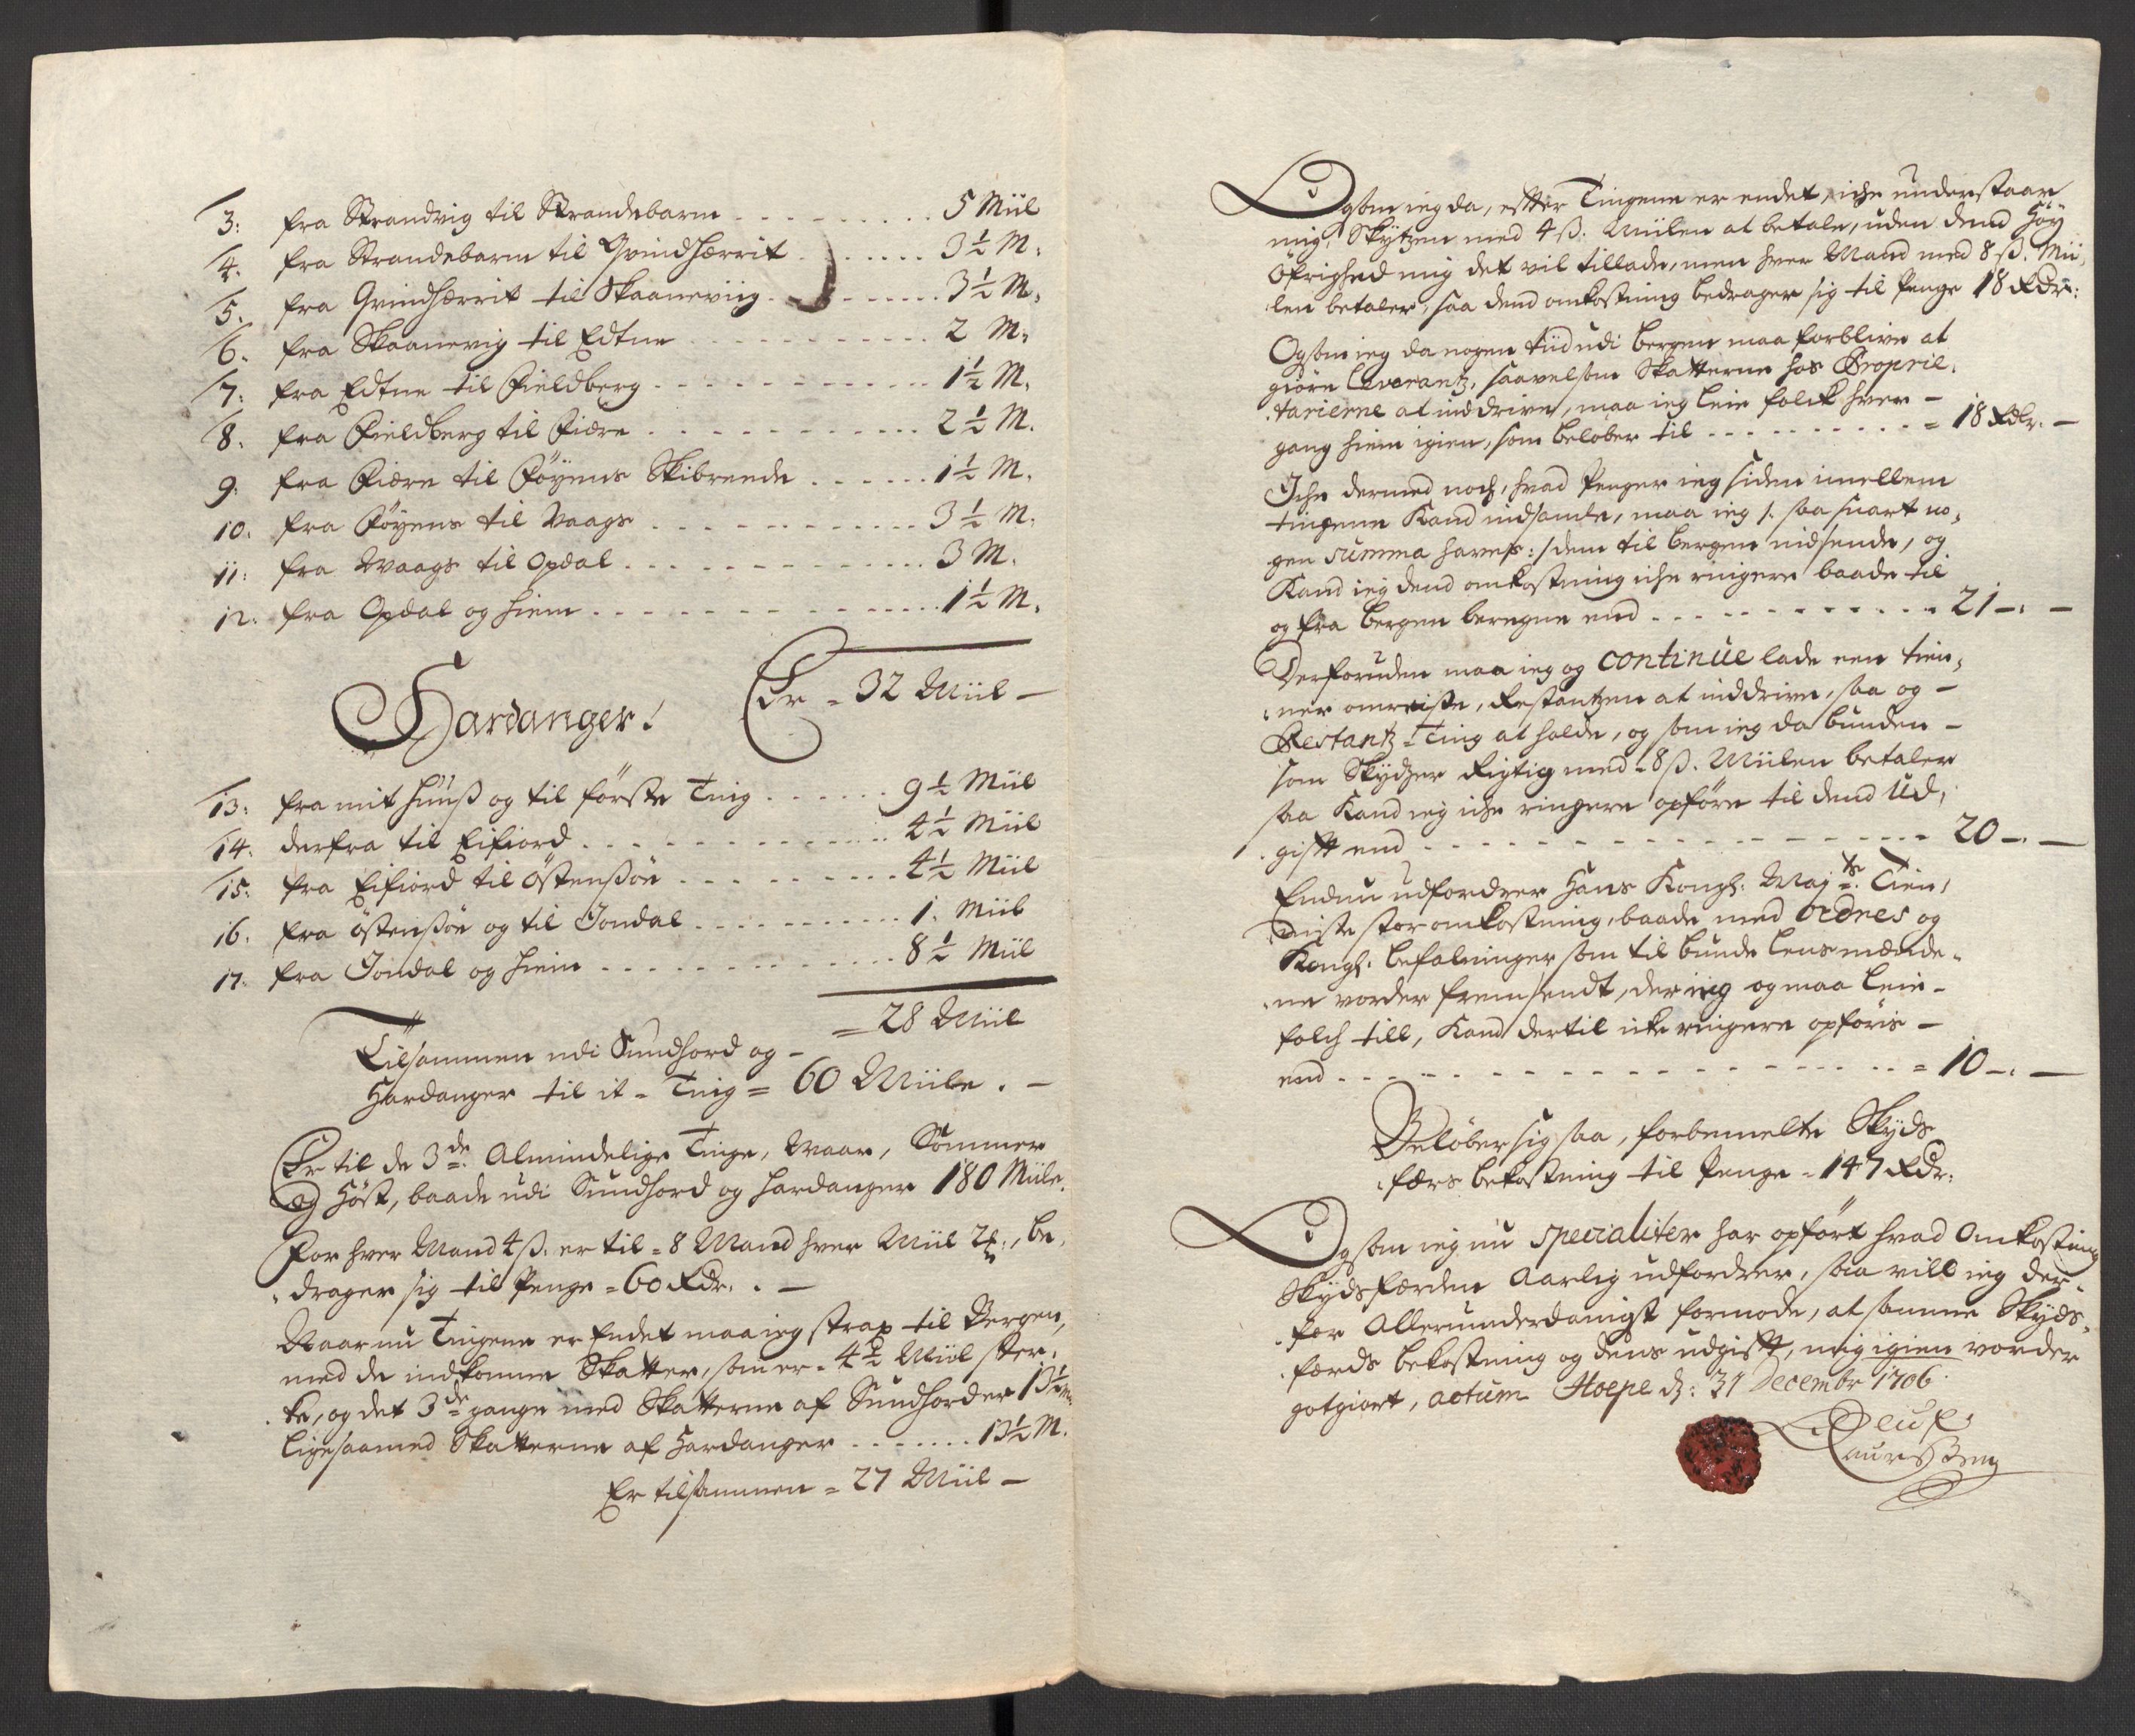 3: fra Strandvig til Strandebarm - - - - - - - - - 5 Miil
4. fra Strandebarm til Qvindhærrit - - - - - - 3½ M:
5. fra Qvindhærrit til Skaaneviig - - - - - - 3½ M.
6. fra Skaanevig til Edtne - - - - - - - - - 2 M.
7. fra Edtne til Fieldberg - - - - - - - - - 1½ M.
8. fra Fieldberg til Fiære - - - - - - - - - 2½ M.
9. fra Fiære til Föyens Skibreede - - - - - - 1½ M.
10. fra Föyens til Vaags - - - - - - - - - 3½ M.
11: fra Waags til Opdal - - - - - - - - - 3 M.
12. fra Opdal og hiem - - - - - - - - - 1½ M.
Er = 32 Miil -
Hardanger!
13: fra mit huuss og til förste Ting - - - - - - 9½ Miil
14. derfra til Eifiord - - - - - - - - - 4½ Miil
15: fra Eifiord til Östenssöe - - - - - - - - - 4½ Miil
16. fra östenssöe og til Jondal - - - - - - - - - 1. Miil
17. fra Jondal og hiem - - - - - - - - - 8½ Miil
= 28 Miil
Tilsammen udi Sundhord og -
Hardanger til it = Ting = 60 Miile . -
Er til de 3de Almindelige Tinge, Waar, Sommer
og Höst, baade udi Sundhord og hardanger 180 Miile.
For hver Mand 4 ß. er til = 8 Mand hver Miil 2 , be,
drager sig til Penge = 60 Rdr. . -
Naar nu Tingene er Endet maa ieg strax til Bergen,
med de indkomne Skatter, som er = 4½ Miil
og det 3de gange med Skatterne af Sundhorder 13½ m.
ligesaa med Skatterne af Hardanger - - - - - - 13½ M.
Er tilsammen = 27 Miil -
Og som ieg da, effter Tingene er endet, iche understaar
mig, Skytzen med 4 ß. Miilen at betale, uden dend Höy
Öfrighed mig det vil tillade, men hver Mand med 8 ß. Mii,
len betaler, saa dend omkostning bedrager sig til Penge 18 Rdr:
Og som ieg da nogen tiid udi bergen maa forblive at
giöre Leverantz, saavelsom Skatterne hos Propriè,
tarierne at inddrive, maa ieg leie folck hver -
gang hiem igien, som belöber til - - - - - - - - - = 18 Rdr. -
Iche dermed noch, hvad Penger ieg siden imellem
tingene Kand indsamle, maa ieg /. saa snart no,
gen summa hafves :/ dem til bergen nidsende, og
Kand ieg dend omkostning iche ringere baade til
og fra bergen beregne end - - - - - - - - - 21 - . -
Derforuden maa ieg og continue lade een tien,
ner omreiste, Restantzen at inddrive, saa og -
Restantz = Ting at holde, og som ieg da bunden -
som Skydzer Rigtig med = 8 ß. Miilen betaler
saa Kand ieg iche ringere opföre til dend Ud,
gifft end - - - - - - - - - 20 - . -
Endnu udfordrer Hans Kongl: Maj.ts Tien,
niste stor omkostning, baade med ordres og
Kongl: befalninger som til bunde lensmænde,
ne vorder fremsendt, der ieg og maa leie -
folch till, Kand dertil icke ringere opföris -
end - - - - - - - - - = 10 - . -
Belöber sig saa, forbemelte Skyds
færs bekostning til Penge = 147 Rdr.
Og som ieg nu specialiter har opfört hvad Omkostning
Skydsfærden Aarlig udfordrer, saa vill ieg der,
for Allerunderdanigst formode, at samme Skyds,
færds bekostning og dens udgifft, mig igien vorder
gotgiort, actum Hoepe d: 31 Decembr 1706.